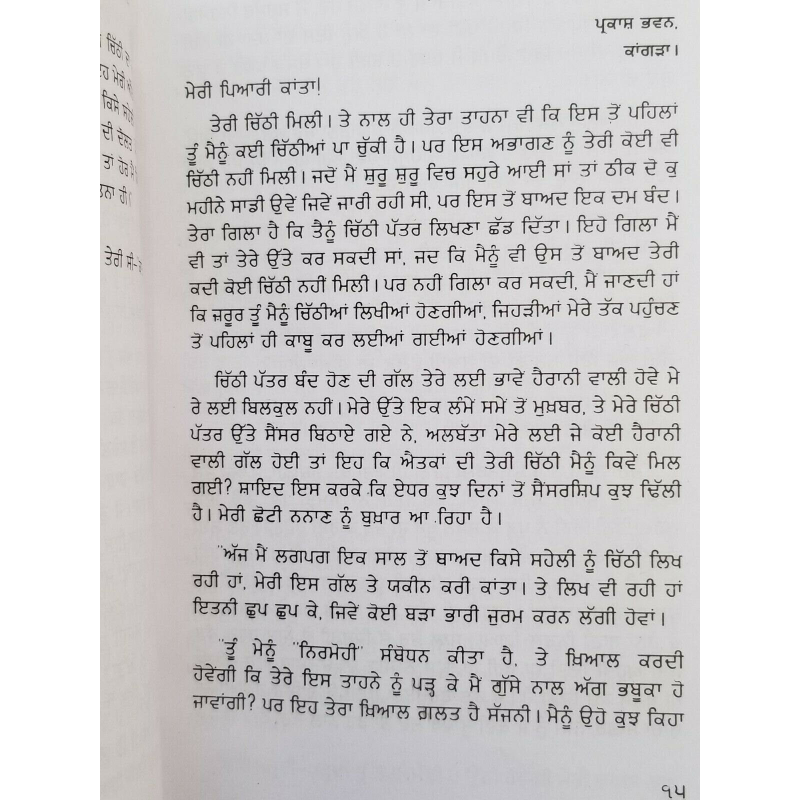 ਪ੍ਰਕਾਸ਼ ਭਵਨ,
ਕਾਂਗੜਾ।
ਮੇਰੀ ਪਿਆਰੀ ਕਾਂਤਾ!
ਤੇਰੀ ਚਿੱਠੀ ਮਿਲੀ। ਤੇ ਨਾਲ ਹੀ ਤੇਰਾ ਤਾਹਨਾ ਵੀ ਕਿ ਇਸ ਤੋਂ ਪਹਿਲਾਂ
ਤੂੰ ਮੈਨੂੰ ਕਈ ਚਿੱਠੀਆਂ ਪਾ ਚੁੱਕੀ ਹੈ। ਪਰ ਇਸ ਅਭਾਗਣ ਨੂੰ ਤੇਰੀ ਕੋਈ ਵੀ
ਚਿੱਠੀ ਨਹੀਂ ਮਿਲੀ। ਜਦੋਂ ਮੈਂ ਸ਼ੁਰੂ ਸ਼ੁਰੂ ਵਿਚ ਸਹੁਰੇ ਆਈ ਸਾਂ ਤਾਂ ਠੀਕ ਦੋ ਕੁ
ਮਹੀਨੇ ਸਾਡੀ ਉਵੇਂ ਜਿਵੇਂ ਜਾਰੀ ਰਹੀ ਸੀ, ਪਰ ਇਸ ਤੋਂ ਬਾਅਦ ਇਕ ਦਮ ਬੰਦ।
ਤੇਰਾ ਗਿਲਾ ਹੈ ਕਿ ਤੈਨੂੰ ਚਿੱਠੀ ਪੱਤਰ ਲਿਖਣਾ ਛੱਡ ਦਿੱਤਾ। ਇਹੋ ਗਿਲਾ ਮੈਂ
ਵੀ ਤਾਂ ਤੇਰੇ ਉੱਤੇ ਕਰ ਸਕਦੀ ਸਾਂ, ਜਦ ਕਿ ਮੈਨੂੰ ਵੀ ਉਸ ਤੋਂ ਬਾਅਦ ਤੇਰੀ
ਕਦੀ ਕੋਈ ਚਿੱਠੀ ਨਹੀਂ ਮਿਲੀ। ਪਰ ਨਹੀਂ ਗਿਲਾ ਕਰ ਸਕਦੀ, ਮੈਂ ਜਾਣਦੀ ਹਾਂ
ਕਿ ਜ਼ਰੂਰ ਤੂੰ ਮੈਨੂੰ ਚਿੱਠੀਆਂ ਲਿਖੀਆਂ ਹੋਣਗੀਆਂ, ਜਿਹੜੀਆਂ ਮੇਰੇ ਤੱਕ ਪਹੁੰਚਣ
ਤੋਂ ਪਹਿਲਾਂ ਹੀ ਕਾਬੂ ਕਰ ਲਈਆਂ ਗਈਆਂ ਹੋਣਗੀਆਂ।
ਚਿੱਠੀ ਪੱਤਰ ਬੰਦ ਹੋਣ ਦੀ ਗੱਲ ਤੇਰੇ ਲਈ ਭਾਵੇਂ ਹੈਰਾਨੀ ਵਾਲੀ ਹੋਵੇ ਮੇ
ਰੇ ਲਈ ਬਿਲਕੁਲ ਨਹੀਂ। ਮੇਰੇ ਉੱਤੇ ਇਕ ਲੰਮੇਂ ਸਮੇਂ ਤੋਂ ਮੁਖ਼ਬਰ, ਤੇ ਮੇਰੇ ਚਿੱਠੀ
ਪੱਤਰ ਉੱਤੇ ਸੈਂਸਰ ਬਿਠਾਏ ਗਏ ਨੇ, ਅਲਬੱਤਾ ਮੇਰੇ ਲਈ ਜੇ ਕੋਈ ਹੈਰਾਨੀ
ਵਾਲੀ ਗੱਲ ਹੋਈ ਤਾਂ ਇਹ ਕਿ ਐਤਕਾਂ ਦੀ ਤੇਰੀ ਚਿੱਠੀ ਮੈਨੂੰ ਕਿਵੇਂ ਮਿਲ
ਗਈ? ਸ਼ਾਇਦ ਇਸ ਕਰਕੇ ਕਿ ਏਧਰ ਕੁਝ ਦਿਨਾਂ ਤੋਂ ਸੈਂਸਰਸ਼ਿਪ ਕੁਝ ਢਿੱਲੀ
ਹੈ। ਮੇਰੀ ਛੋਟੀ ਨਨਾਣ ਨੂੰ ਬੁਖ਼ਾਰ ਆ ਰਿਹਾ ਹੈ।
"ਅੱਜ ਮੈਂ ਲਗਪਗ ਇਕ ਸਾਲ ਤੋਂ ਬਾਅਦ ਕਿਸੇ ਸਹੇਲੀ ਨੂੰ ਚਿੱਠੀ ਲਿਖ
ਰਹੀ ਹਾਂ, ਮੇਰੀ ਇਸ ਗੱਲ ਤੇ ਯਕੀਨ ਕਰੀ ਕਾਂਤਾ। ਤੇ ਲਿਖ ਵੀ ਰਹੀ ਹਾਂ
ਇਤਨੀ ਛੁਪ ਛੁਪ ਕੇ, ਜਿਵੇਂ ਕੋਈ ਬੜਾ ਭਾਰੀ ਜੁਰਮ ਕਰਨ ਲੱਗੀ ਹੋਵਾਂ।
"ਤੂੰ ਮੇਨੂੰ "ਨਿਰਮੋਹੀ" ਸੰਬੋਧਨ ਕੀਤਾ ਹੈ, ਤੇ ਖ਼ਿਆਲ ਕਰਦੀ
ਹੋਵੇਂਗੀ ਕਿ ਤੇਰੇ ਇਸ ਤਾਹਨੇ ਨੂੰ ਪੜ੍ਹ ਕੇ ਮੈਂ ਗੁੱਸੇ ਨਾਲ ਅੱਗ ਭਬੂਕਾ ਹੋ
ਜਾਵਾਂਗੀ? ਪਰ ਇਹ ਤੇਰਾ ਖ਼ਿਆਲ ਗ਼ਲਤ ਹੈ ਸੱਜਨੀ। ਮੈਨੂੰ ਉਹੋ ਕੁਝ ਕਿਹਾ
੧੫
ਚਿੱਠੀ ਦ
ਮੇਰੀ
ਕਿਸੇ
ਦੀ ਦੌਲਤ
ਤਾਂ ਹੋਰ
ਹੀ।
ਤੇਰੀ ਸੀ-